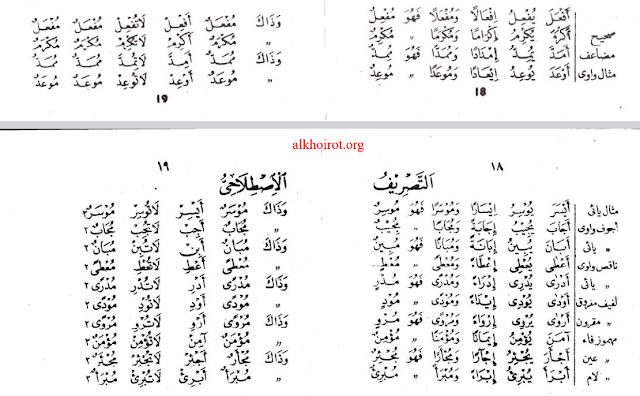 أَفْعَلَ يُفْعِلُ إِفْعَالًا وَمُفْعَلًا فَهُوَ مُفْعِلٌ
صحيح أَكْرَمَ يُكْرِمُ إِكْرَامًا وَمُكْرَمًا " مُكْرِمٌ
مضاعف أَمَدَّ يُمِدُّ إِمْدَادًا وَمُمَدًّا فَهُوَ مُمِدٌّ
مثال واوى أَوْعَدَ يُوعِدُ إِيْعَادًا وَمُوعَدًا " مُوعِدٌ
18
وَذَاكَ مُفْعَلٌ أَفْعِلْ لَاتُفْعِلْ مُفْعَلٌ مُفْعَلٌ
" مُكْرَمٌ أَكْرِمْ لَاتُكْرِمْ مُكْرَمٌ مُكْرَمٌ
وَذَاكَ مُمَدٌّ أَمِدَّ لَاتُمِدَّ مُمَدٌّ مُمَدٌّ
" مُوعَدٌ أَوْعِدْ لَاتُوعِدْ مُوعَدٌ مُوعَدٌ
19
alkhoirot.org
١٨
اَلتَّصْرِيْفُ
مثال يائى أَيْسَرَ يُوْسِرُ إِيْسَارًا وَمُوْسَرًا فَهُوَ مُوْسِرٌ
أجوف واوى أَجَابَ يُجِيْبُ إِجَابَةً وَمُجَابًا " مُجِيْبٌ
" يائى أَبَانَ يُبِيْنُ إِبَانَةً وَمُبَانًا فَهُوَ مُبِيْنٌ
ناقص واوى أَعْطَى يُعْطِى إِعْطَاءً وَمُعْطًى " مُعْطٍ
" يائى أَدْرَى يُدْرِى إِدْرَاءً وَمُدْرًى فَهُوَ مُدْرٍ
لفيف مفروق أَوْدَى يُوْدِى إِيْدَاءً وَمُوْدًى " مُوْدٍ
" مقرون أَرْوَى يُرْوِى إِرْوَاءً وَمُرْوًى فَهُوَ مُرْوٍ
مهموز فاء آمَنَ يُؤْمِنُ إِيْمَانًا وَمُؤْمَنًا " مُؤْمِنٌ
" عين أَجْأَرَ يُجْئِرُ إِجْآرًا وَمُجْأَرًا فَهُوَ مُجْئِرٌ
" لام أَبْرَأَ يُبْرِئُ إِبْرَاءً وَمُبْرَأً " مُبْرِئٌ
١٩
اَلْاِصْطِلَاحِىُّ
وَذَاكَ مُوْسَرٌ أَيْسِرْ لَاتُوْسِرْ مُوْسَرٌ٢
" مُجَابٌ أَجِبْ لَاتُجِبْ مُجَابٌ٢
وَذَاكَ مُبَانٌ أَبِنْ لَاتُبِنْ مُبَانٌ٢
" مُعْطًى أَعْطِ لَاتُعْطِ مُعْطًى٢
وَذَاكَ مُدْرًى أَدْرِ لَاتُدْرِ مُدْرًى٢
" مُوْدًى أَوْدِ لَاتُوْدِ مُوْدًى٢
وَذَاكَ مُرْوًى أَرْوِ لَاتُرْوِ مُرْوًى٢
" مُؤْمَنٌ آمِنْ لَاتُؤْمِنْ مُؤْمَنٌ٢
وَذَاكَ مُجْأَرٌ أَجْئِرْ لَاتُجْئِرْ مُجْأَرٌ٢
" مُبْرَأٌ أَبْرِئْ لَاتُبْرِئْ مُبْرَأٌ٢